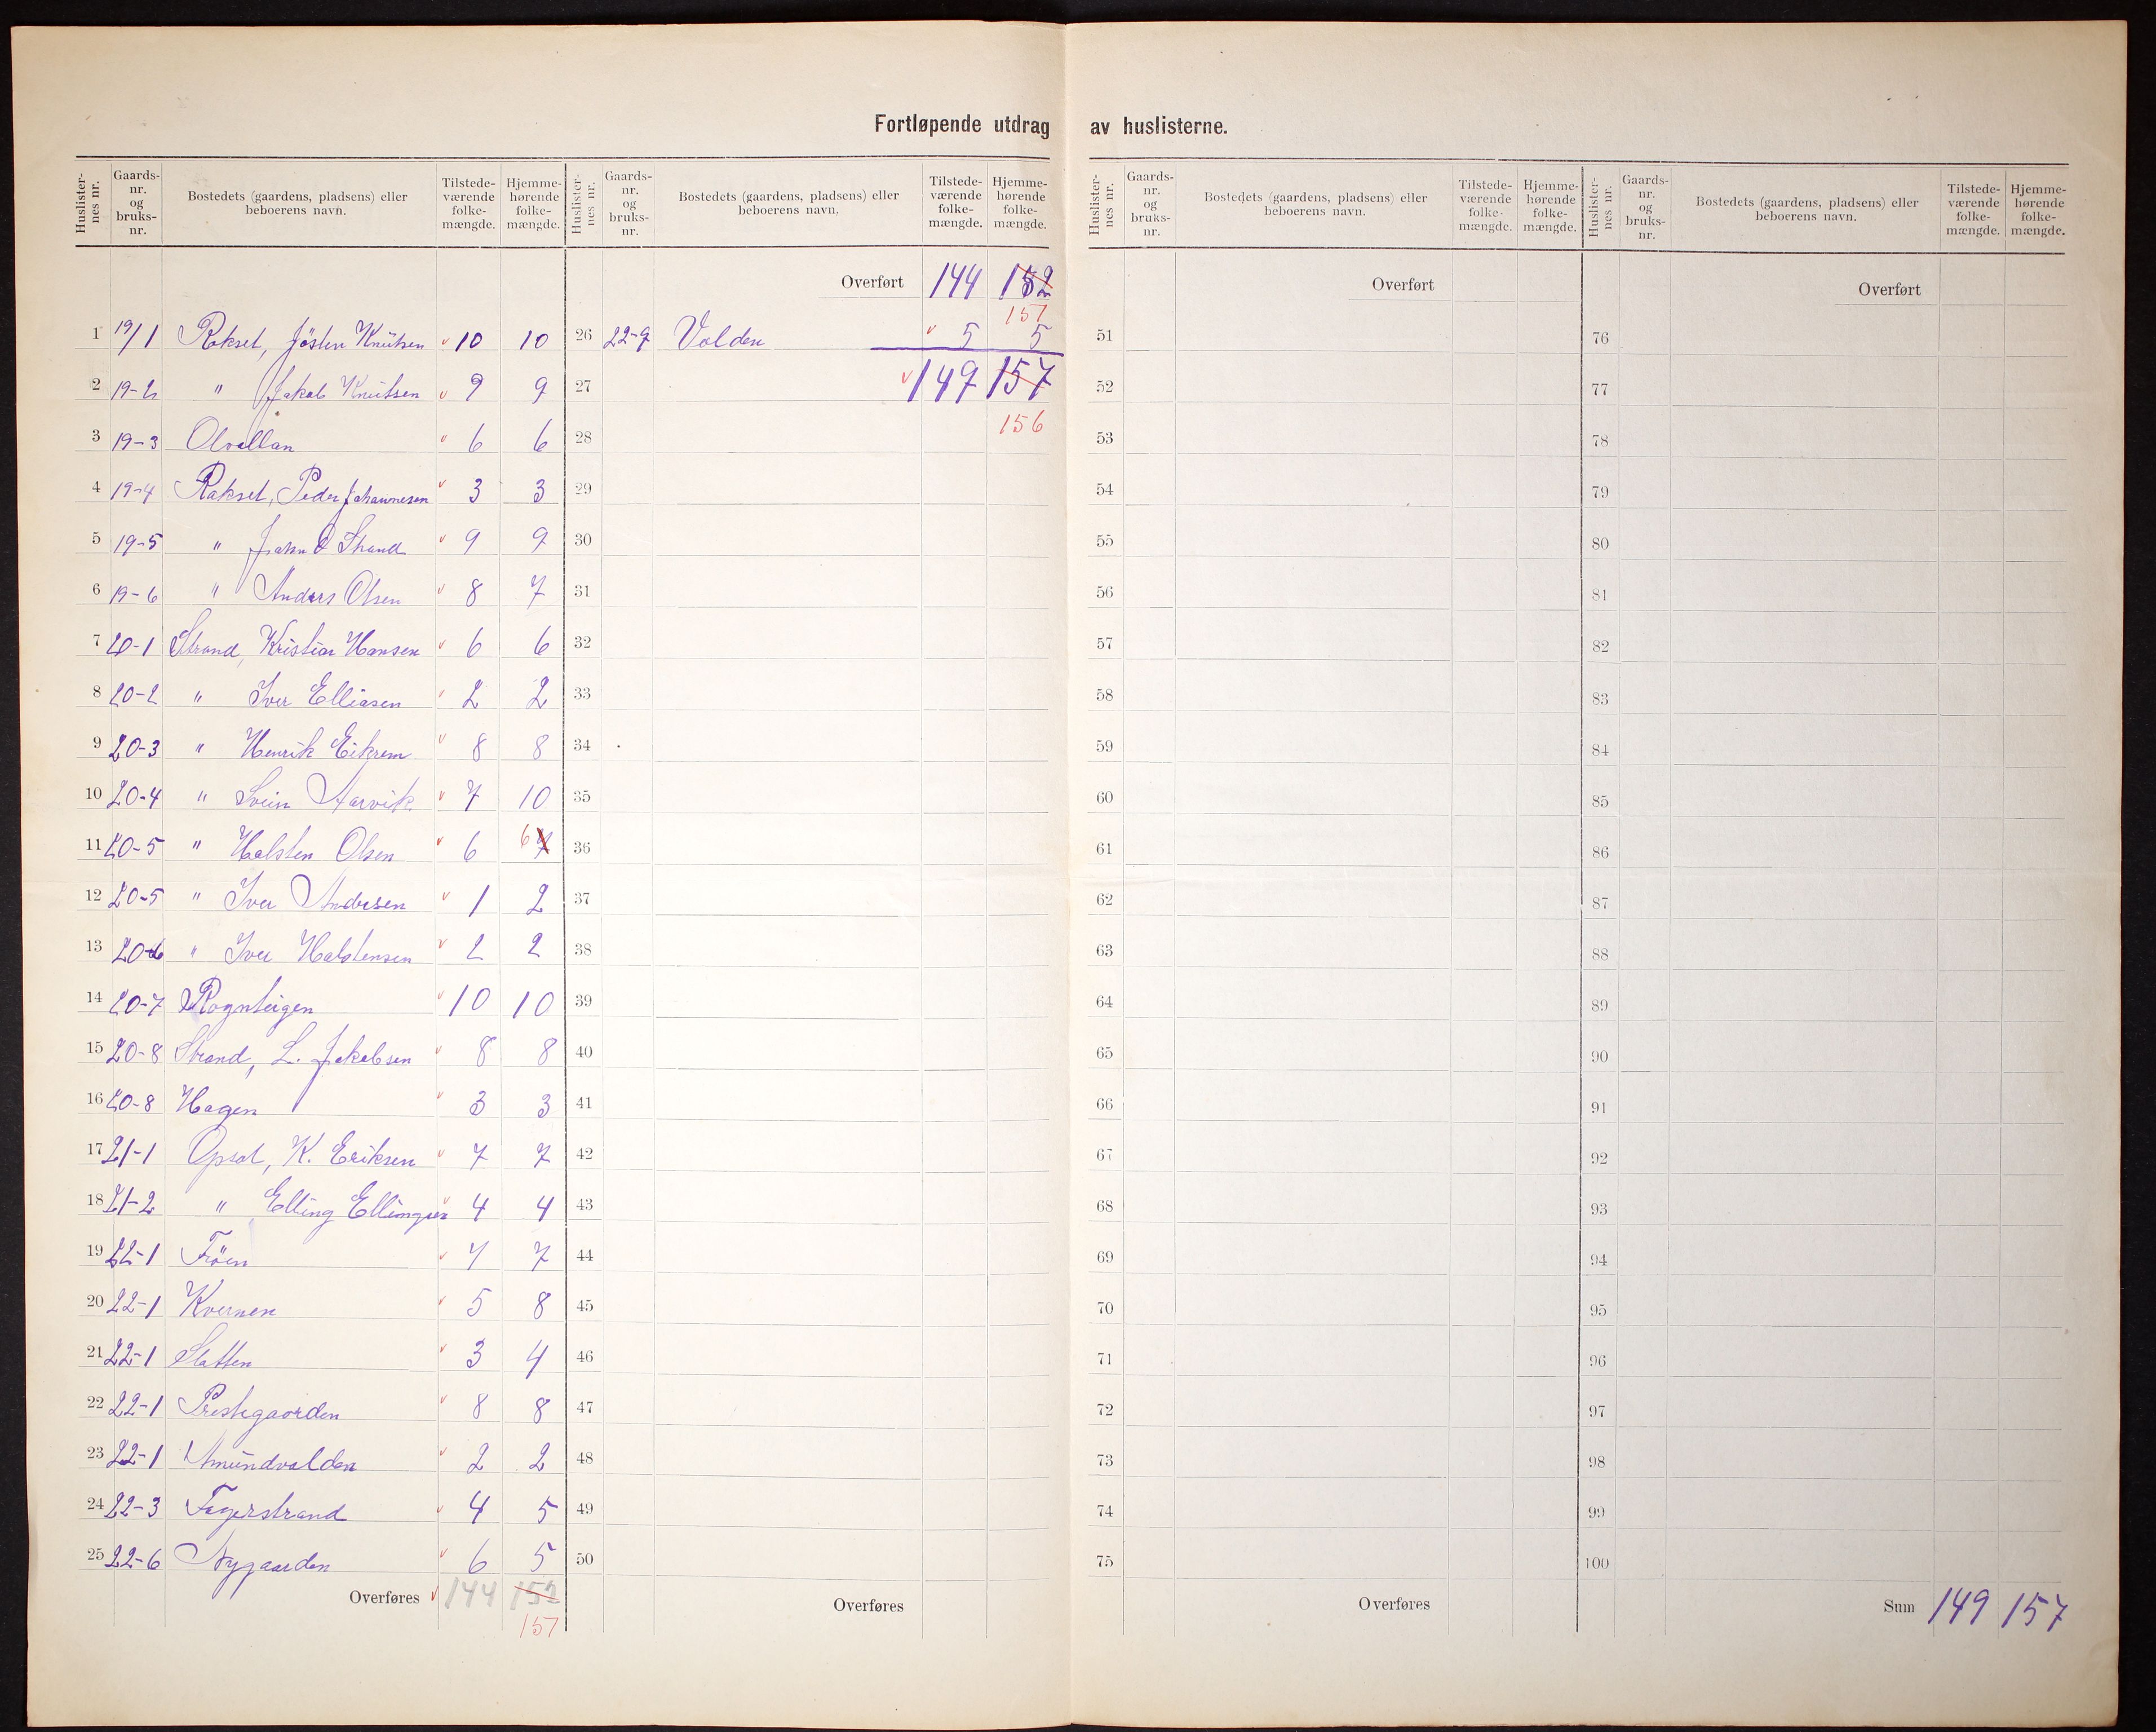 Fortløpende utdrag av huslisterne.
Huslister-nes nr. Gaards-nr. og bruks-nr. Bostedets (gaardens, pladsens) eller beboerens navn. Tilstede-værende folke-mængde. Hjemme-hørende folke-mængde. Huslister-nes nr. Gaards-nr. og bruks-nr. Bostedets (gaardens, pladsens) eller beboerens navn. Tilstede-værende folke-mængde. Hjemme-hørende folke-mængde.
Huslister-nes nr. Gaards-nr. og bruks-nr. Bostedets (gaardens, pladsens) eller beboerens navn. Tilstede-værende folke-mængde. Hjemme-hørende folke-mængde. Huslister-nes nr. Gaards-nr. og bruks-nr. Bostedets (gaardens, pladsens) eller beboerens navn. Tilstede-værende folke-mængde. Hjemme-hørende folke-mængde.
Overført 144 152 Overført Overført
151
1 19/1 Rokset, Jósten Knutsen v 10 10 26 22-9 Volden v 5 5 51 76
2 19-2 " Jakob Knutsen v 9 9 27 v 149 157 52 77
3 19-3 Olvallan v 6 6 28 156 53 78
4 19-4 Rakset, Peder Johannesen v 3 3 29 54 79
5 19-5 " John O Strand v 9 9 30 55 80
6 19-6 " Anders Olsen v 8 7 31 56 81
7 20-1 Strand, Kristian Hansen v 6 6 32 57 82
8 20-2 " Iver Elliasen v 2 2 33 58 83
9 20-3 " Henrik Eikrem v 8 8 34 59 84
10 20-4 " Svein Aarvik v 7 10 35 60 85
11 20-5 " Halsten Olsen v 6 6 7 36 61 86
12 20-5 " Iver Andersen v 1 2 37 62 87
13 20-6 " Iver Halstensen v 2 2 38 63 88
14 20-7 Rognteigen v 10 10 39 64 89
15 20-8 Strand, L. Jakobsen v 8 8 40 65 90
16 20-8 Hagen v 3 3 41 66 91
17 21-1 Opsal, K. Eriksen v 7 7 42 67 92
18 21-2 " Elling Ellingsen v 4 4 43 68 93
19 22-1 Fröen v 7 7 44 69 94
20 22-1 Kvernen v 5 8 45 70 95
21 22-1 Slatten v 3 4 46 71 96
22 22-1 Prestegaarden v 8 8 47 72 97
23 22-1 Amundvolden v 2 2 48 73 98
24 22-3 Fagerstrand v 4 5 49 74 99
25 22-6 Nygaarden v 6 5 50 75 100
Overføres v 144 152 Overføres Overføres Sum 149 157
151